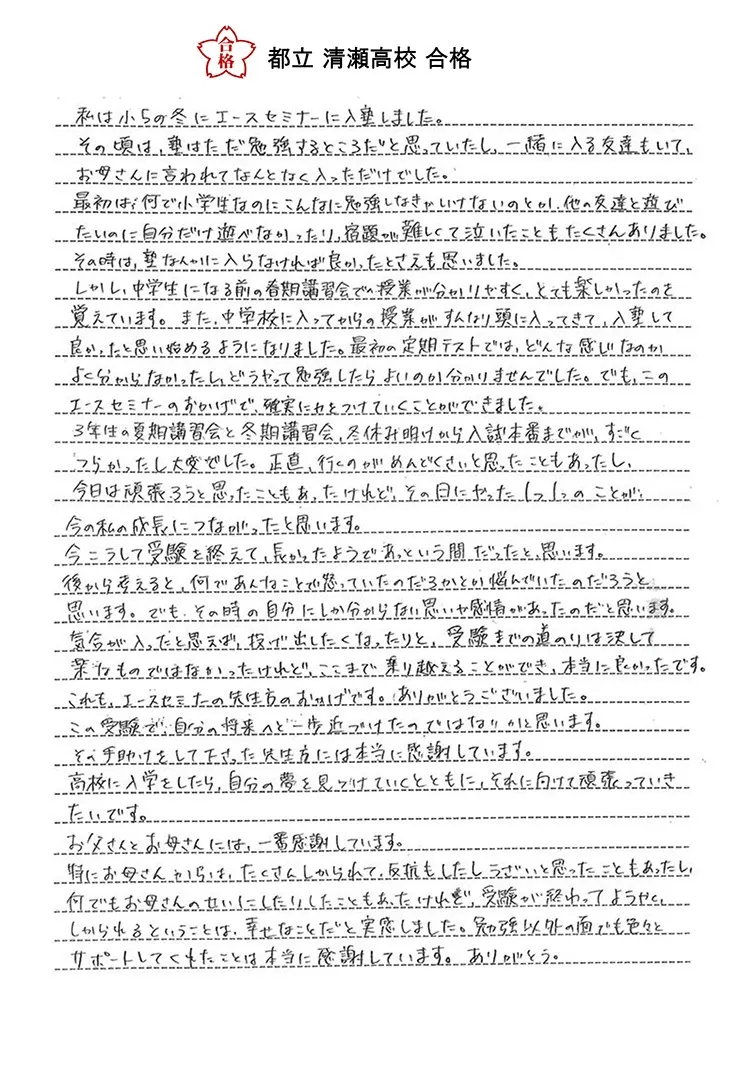 合格
都立 清瀬高校 合格
私は小5の冬にエースセミナーに入塾しました。
その頃は、塾はただ勉強するところだと思っていたし、一緒に入る友達もいて、
お母さんに言われてなんとなく入っただけでした。
最初は、何で小学生なのにこんなに勉強しなきゃいけないのとか、他の友達と遊び
たいのに自分だけ遊べなかったり、宿題が難しくて泣いたこともたくさんありました。
その時は、塾なんかに入らなければ良かったとさえも思いました。
しかし、中学生になる前の春期講習会での授業が分かりやすく、とても楽しかったのを
覚えています。また、中学校に入ってからの授業がすんなり頭に入ってきて、入塾して
良かったと思い始めるようになりました。最初の定期テストでは、どんな感じなのか
よく分からなかったし、どうやって勉強したらよいのか分かりませんでした。でも、この
エースセミナーのおかげで、確実に力をつけていくことができました。
3年生の夏期講習会と冬期講習会、冬休み明けから入試本番までが、すごく
つらかったし大変でした。正直、行くのがめんどくさいと思ったこともあったし、
今日は頑張ろうと思ったこともあったけれど、その日にやった1つ1つのことが、
今の私の成長につながったと思います。
今こうして受験を終えて、長かったようであっという間だったと、思います。
後から考えると、何であんなことで怒っていたのだろうかとか悩んでいたのだろうと
思います。でも、その時の自分にしか分からない思いや感情があったのだと思います。
気合が入ったと思えば、投げ出したくなったりと、受験までの道のりは決して
楽なものではなかったけれど、ここまで乗り越えることができ、本当に良かったです。
これも、エースセミナーの先生方のおかげです。ありがとうございました。
この受験で、自分の将来へと一歩近づけたのではないかと思います。
その手助けをして下さった先生方には本当に感謝しています。
高校に入学をしたら、自分の夢を見つけていくとともに、それに向けて頑張っていき
たいです。
お父さんとお母さんには、一番感謝しています。
特にお母さんからは、たくさんしかられて、反抗もしたしうざいと思ったこともあったし、
何でもお母さんのせいにしたりしたこともあったけれど、受験が終わってようやく、
しかられるということは、幸せなことだと実感しました。勉強以外の面でも色々と
サポートしてくれたことは本当に感謝しています。ありがとう。